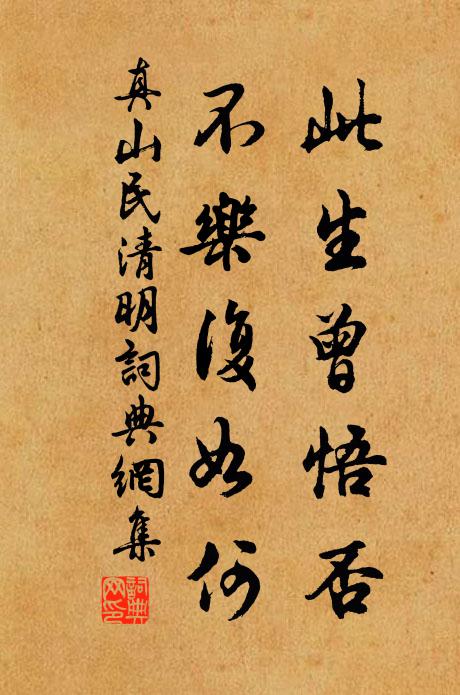 此生曾悟否
不樂復如何
真山民清明詞典網集
詞典網印